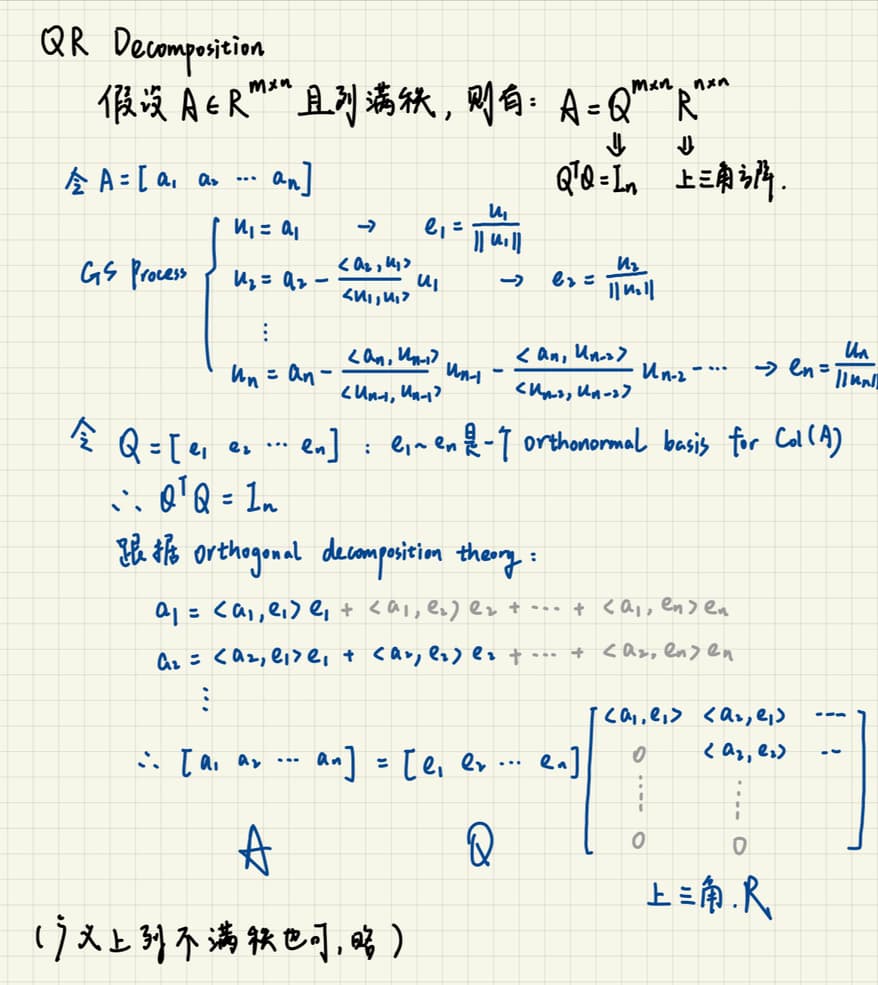 QR Decomposition
假设 A∈R^{m×n} 且列满秩, 则有: A = Q^{m×n} R^{n×n}
⇓ ⇓
QᵀQ = Iₙ 上三角方阵.
令 A = [a₁ a₂ ⋯ aₙ]
GS Process
u₁ = a₁ → e₁ = u₁ / ||u₁||
u₂ = a₂ - <a₂,u₁> / <u₁,u₁> u₁ → e₂ = u₂ / ||u₂||
⋮
uₙ = aₙ - <aₙ,uₙ₋₁> / <uₙ₋₁,uₙ₋₁> uₙ₋₁ - <aₙ,uₙ₋₂> / <uₙ₋₂,uₙ₋₂> uₙ₋₂ - ⋯ → eₙ = uₙ / ||uₙ||
令 Q = [e₁ e₂ ⋯ eₙ] : e₁~eₙ 是一个 orthonormal basis for Col(A)
∴ QᵀQ = Iₙ
跟据 orthogonal decomposition theory:
a₁ = <a₁,e₁>e₁ + <a₁,e₂>e₂ + ⋯ + <a₁,eₙ>eₙ
a₂ = <a₂,e₁>e₁ + <a₂,e₂>e₂ + ⋯ + <a₂,eₙ>eₙ
⋮
∴ [a₁ a₂ ⋯ aₙ] = [e₁ e₂ ⋯ eₙ]
<a₁,e₁> <a₂,e₁> ---
0 <a₂,e₂> --
⋮ ⋮
0 0
A Q 上三角.R
(广义上列不满秩也可,略)